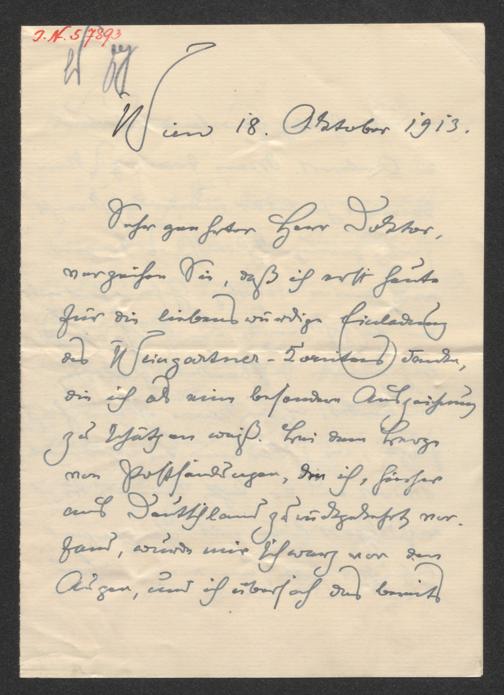 I.N. 57893
Wien 18. Oktober 1913.
Sehr geehrter Herr Doktor,
verzeihen Sie, daß ich erst heute
für die liebenswürdige Einladung
des Weingartner-Comitees danke,
die ich als eine besondere Auszeichnung
zu schätzen weiß. Bei dem Berge
von Postsendungen, den ich, hierher
aus Deutschland zurückgekehrt vor-
fand, wurde mir schwarz vor den
Augen, und ich übersah das bereits